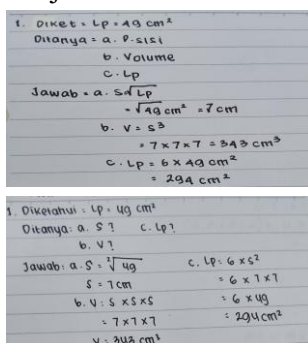 1. Diket = Lp = 49 cm²
Ditanya = a. P. sisi
b. Volume
c. Lp
Jawab = a. S√Lp
= √49 cm² = 7 cm
b. V = s³
= 7 × 7 × 7 = 343 cm³
c. Lp = 6 × 49 cm²
= 294 cm²
1. Diketahui : Lp = 49 cm²
Ditanya : a. S ? c. Lp ?
b. V ?
Jawab : a. S = ²√49
S = 7 cm
b. V : S × S × S
= 7 × 7 × 7
V : 343 cm³
c. Lp : 6 × s²
= 6 × 7 × 7
= 6 × 49
= 294 cm²